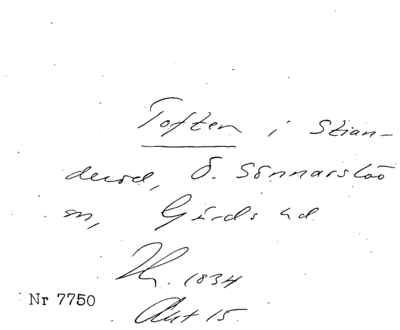 Toften i Stian-
derod, Ö. Sönnarslöv
sn, Gärds hd
Th. 1834
Akt 15.
Nr 7750